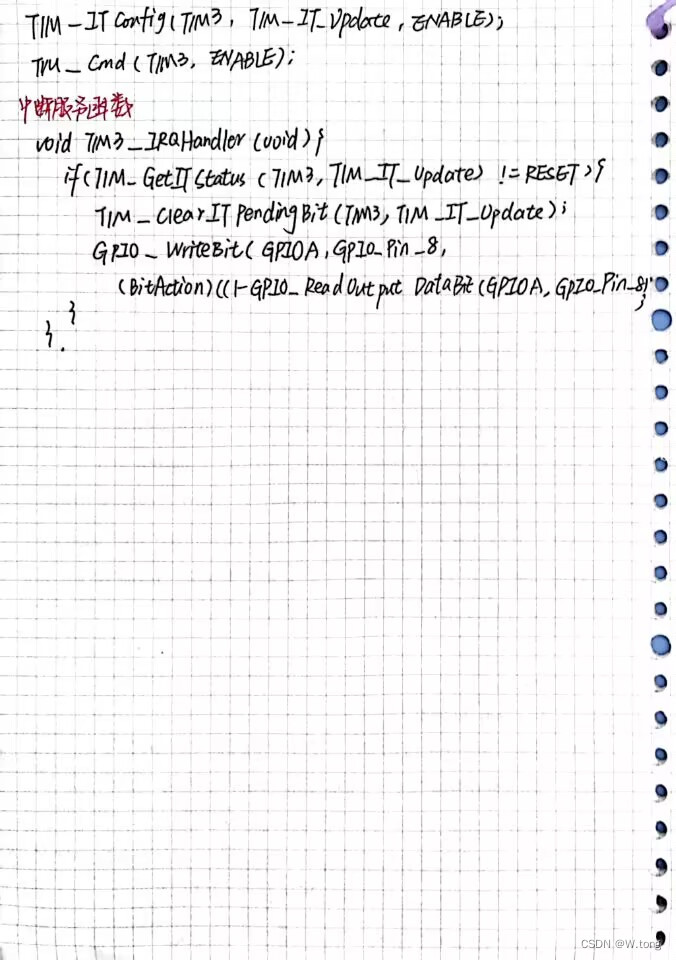 TIM_IT Config(TIM3, TIM_IT_Update, ENABLE);
TIM_Cmd(TIM3, ENABLE);
中断服务函数
void TIM3_IRQHandler(void){
if(TIM_GetITStatus(TIM3, TIM_IT_Update) != RESET){
TIM_ClearITPendingBit(TIM3, TIM_IT_Update);
GPIO_WriteBit(GPIOA, GPIO_Pin_8,
(BitAction)((1-GPIO_ReadOutputDataBit(GPIOA, GPIO_Pin_8)
;
}
}.
CSDN @W.tong